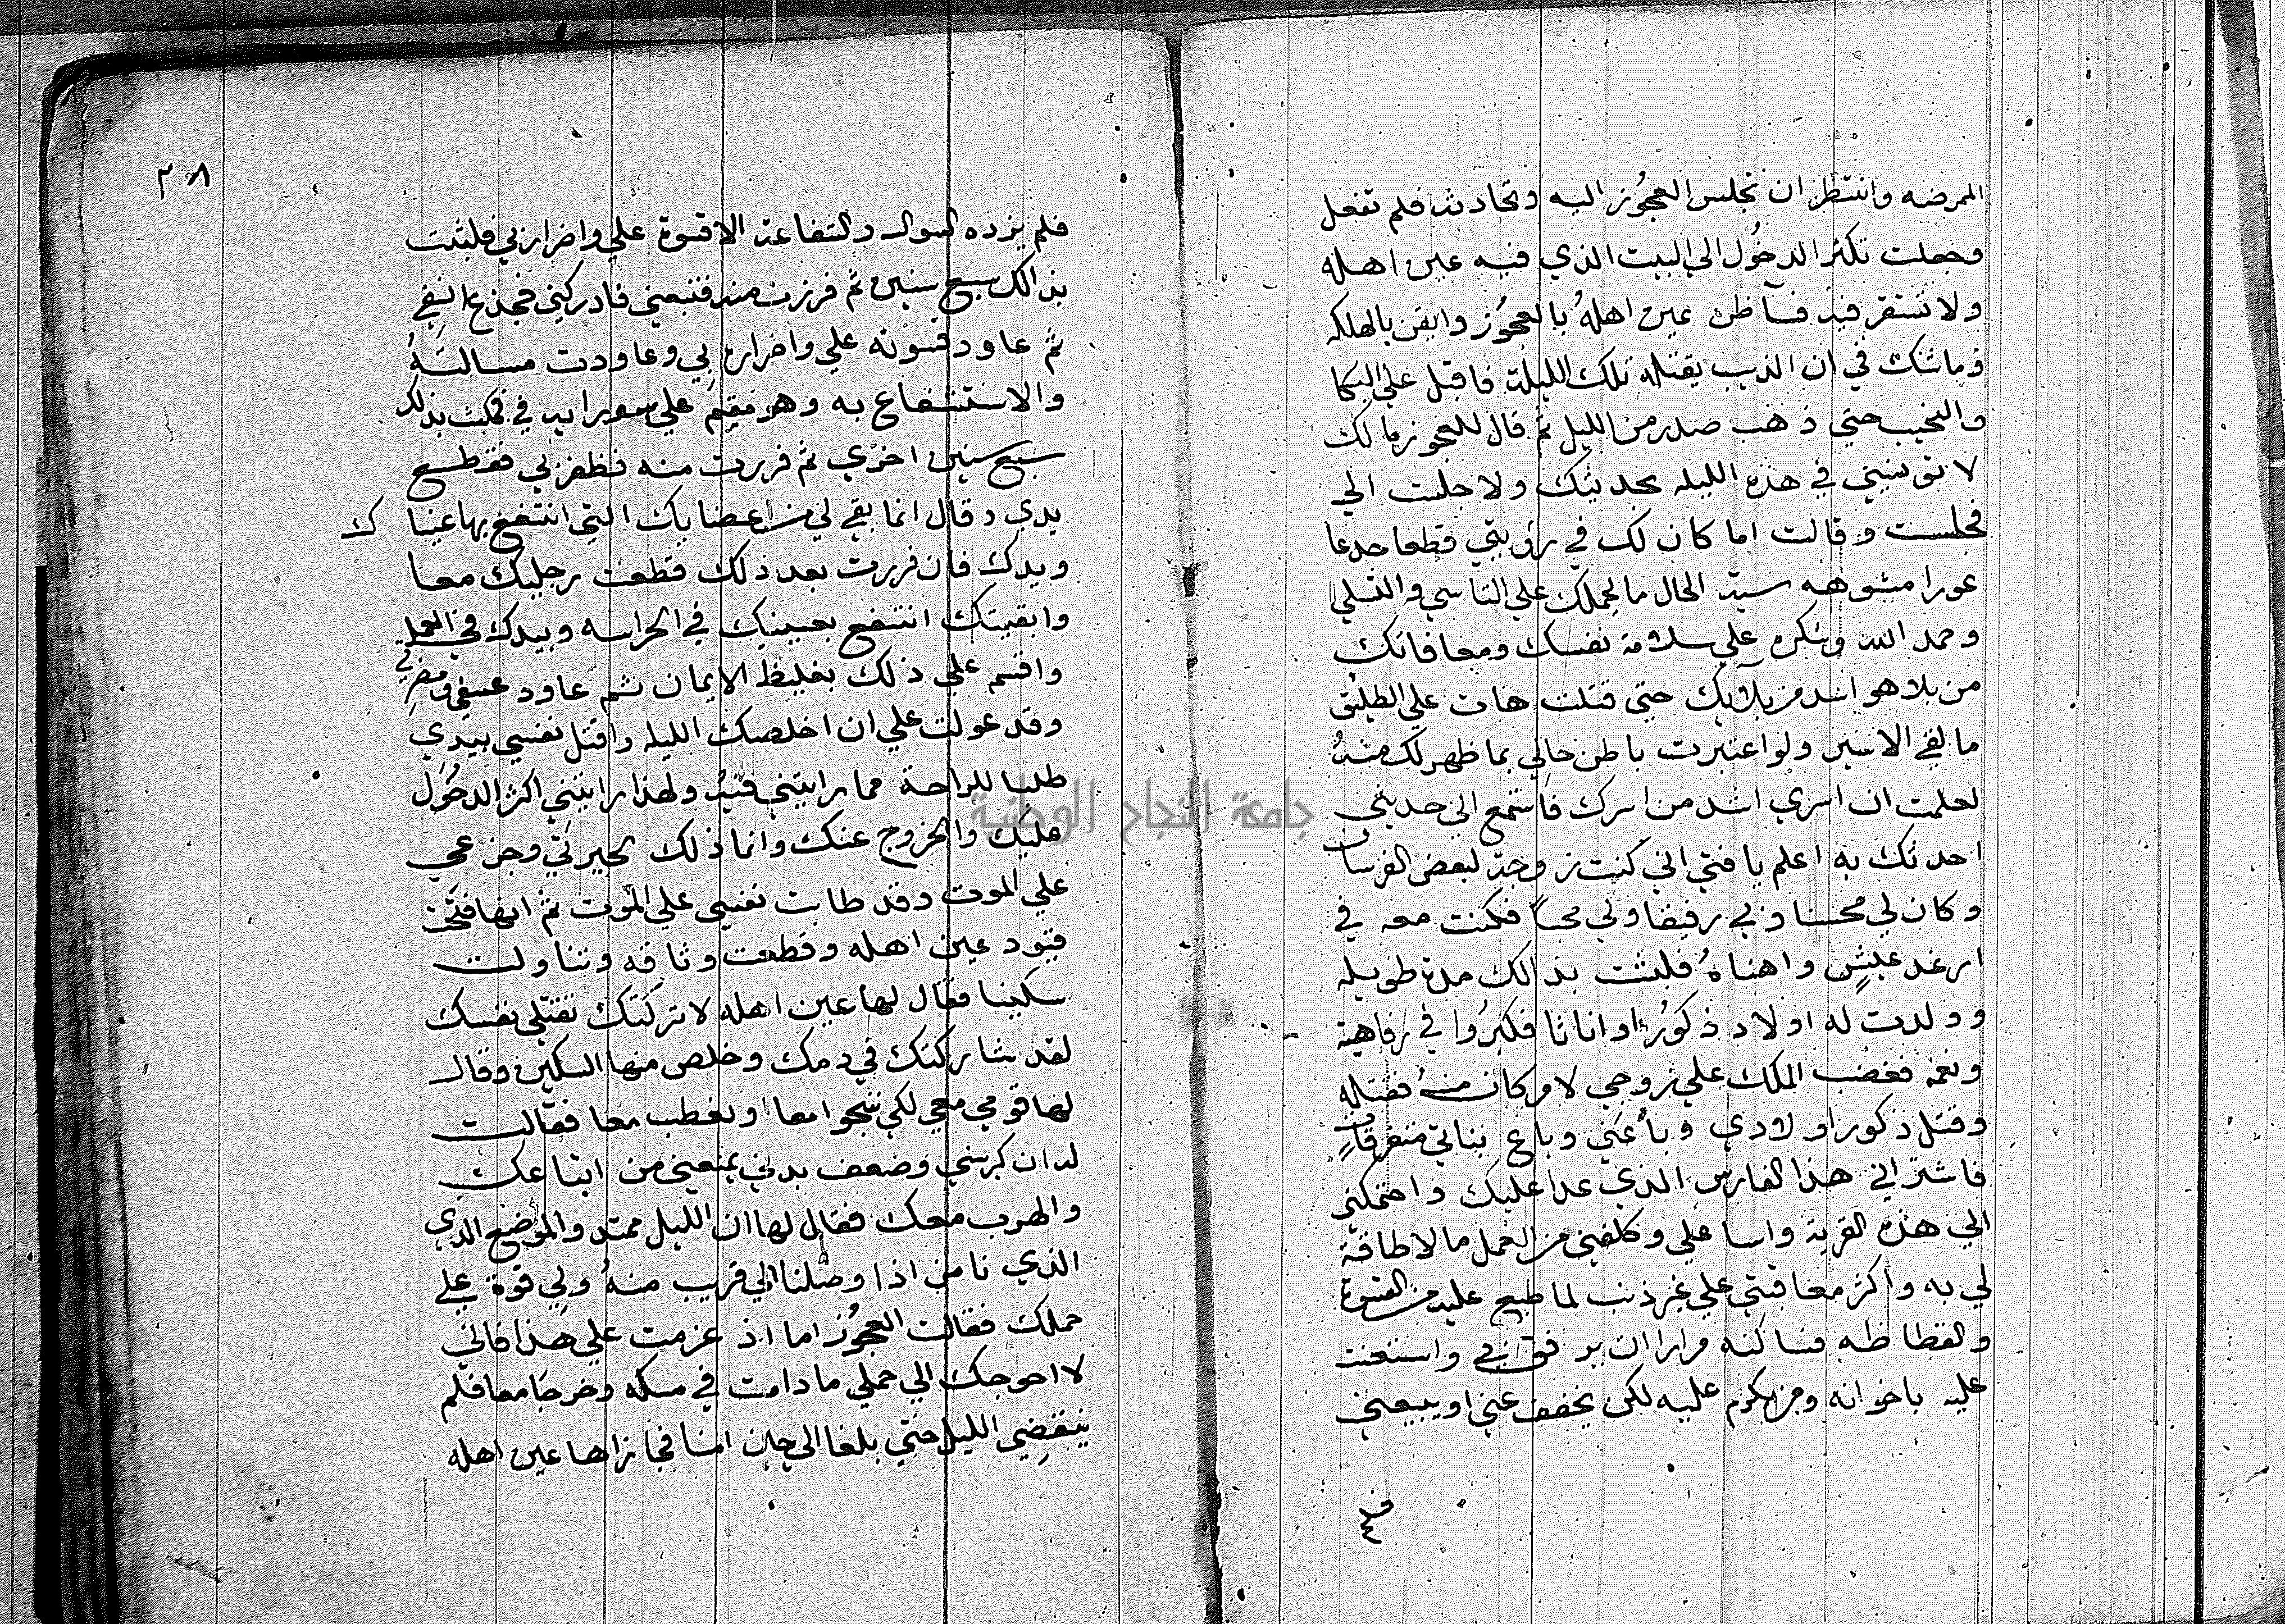 الممرضه وانتظر ان تجلس العجوز اليه وتحادثه فلم تفعل
وجعلت تكثر الدخول الي البيت الذي فيه عين اهله
ولا تستقر فيه فساظن عين اهله بالعجوز وايقن بالهلكه
وما شك في ان الذيب يقتله تلك الليلة فاقبل علي البكا
والنحيب حتي ذهب صدر من الليل ثم قال للعجوز مالك
لا تونسيني في هذه الليله بحديثك ولا جلست الي
فجلست وقالت اما كان لك في رؤيتي قطعا جدعا
عورا مشوهه سية الحال ما يحملك علي التاسي والتسلي
وحمد الله وشكره علي سلامة نفسك ومعافاتك
من بلا هو اشد من بلايك حتي قتلت هات علي الطليق
ما لقي الاسير ولو اعتبرت باطن حالي بما ظهر لك منه
لعلمت ان اسري اشد من اسرك فاستمع الي حديثي
احدثك به اعلم يا فتي اني كنت زوجة لبعض الفرسان
وكان لي محسنا وبي رفيقا ولي محبا فكنت معه في
ارغد عيش واهناه فلبثت بذالك مدة طويله
وولدت له اولاد ذكورا واناثا فكبروا في رفاهية
ونعمة فغضب الملك علي زوجي لامر كان منه فقتله
وقتل ذكور اولادي وباعني وباع بناتي متفرقات
فاشتراني هذا الفارس الذي عدا عليك واحتملني
الي هذه القرية واسا علي وكلفني من العمل ما لا طاقة
لي به واكثر معاقبتي علي غير ذنب لما طبع عليه من القسوة
والفظاظه فسالته مرارا ان يرفق بي واستعنت
عليه باخوانه ومن يكرم عليه لكي يخفف عني او يبيعني
فلم
٣٨
فلم يزده السوال والشفاعة الا قسوة علي واضرار بي فلبثت
بذالك سبع سنين ثم فررت منه فتبعني فادركني فجدع انفي
ثم عاود قسوته علي واضراره بي وعاودت مسالته
والاستشفاع به وهو مقيم علي سو رايه في فمكثت بذلك
سبع سنين اخري ثم فررت منه فظفر بي فقطع
يدي وقال انما بقي لي من اعضايك التي انتفع بها عينا ك
ويدك فان فررت بعد ذلك قطعت رجليك معا
وابقيتك انتفع بعينيك في الحراسه وبيدك في العمل
واقسم علي ذلك بغليظ الايمان ثم عاود عسفي وضربي
وقد عولت علي ان اخلصك الليله واقتل نفسي بيدي
طلبا للراحة مما رايتني فيه ولهذا رايتني اكثر الدخول
عليك والخروج عنك وانما ذلك لحيرتي وجزعي
علي الموت وقد طابت نفسي علي الموت ثم انها فتحت
قيود عين اهله وقطعت وثاقه وتناولت
سكينا فقال لها عين اهله لا تركتك تقتلي نفسك
لقد شاركتك في دمك وخلص منها السكين وقال
لها قومي معي لكي ننجوا معا او نعطب معا فقالت
له ان كبر سني وضعف بدني يمنعني من اتباعك
والهرب معك فقال لها ان الليل ممتد والموضع الذي
الذي نامن اذا وصلنا الي قريب منه ولي قوة علي
حملك فقالت العجوز اما اذ عزمت علي هذا فاني
لا احوجك الي حملي ما دامت في مسكه وخرجا معا فلم
ينقضي الليل حتي بلغا الي حين امنا فجازاها عين اهله
جامعة النجاح الوطنية